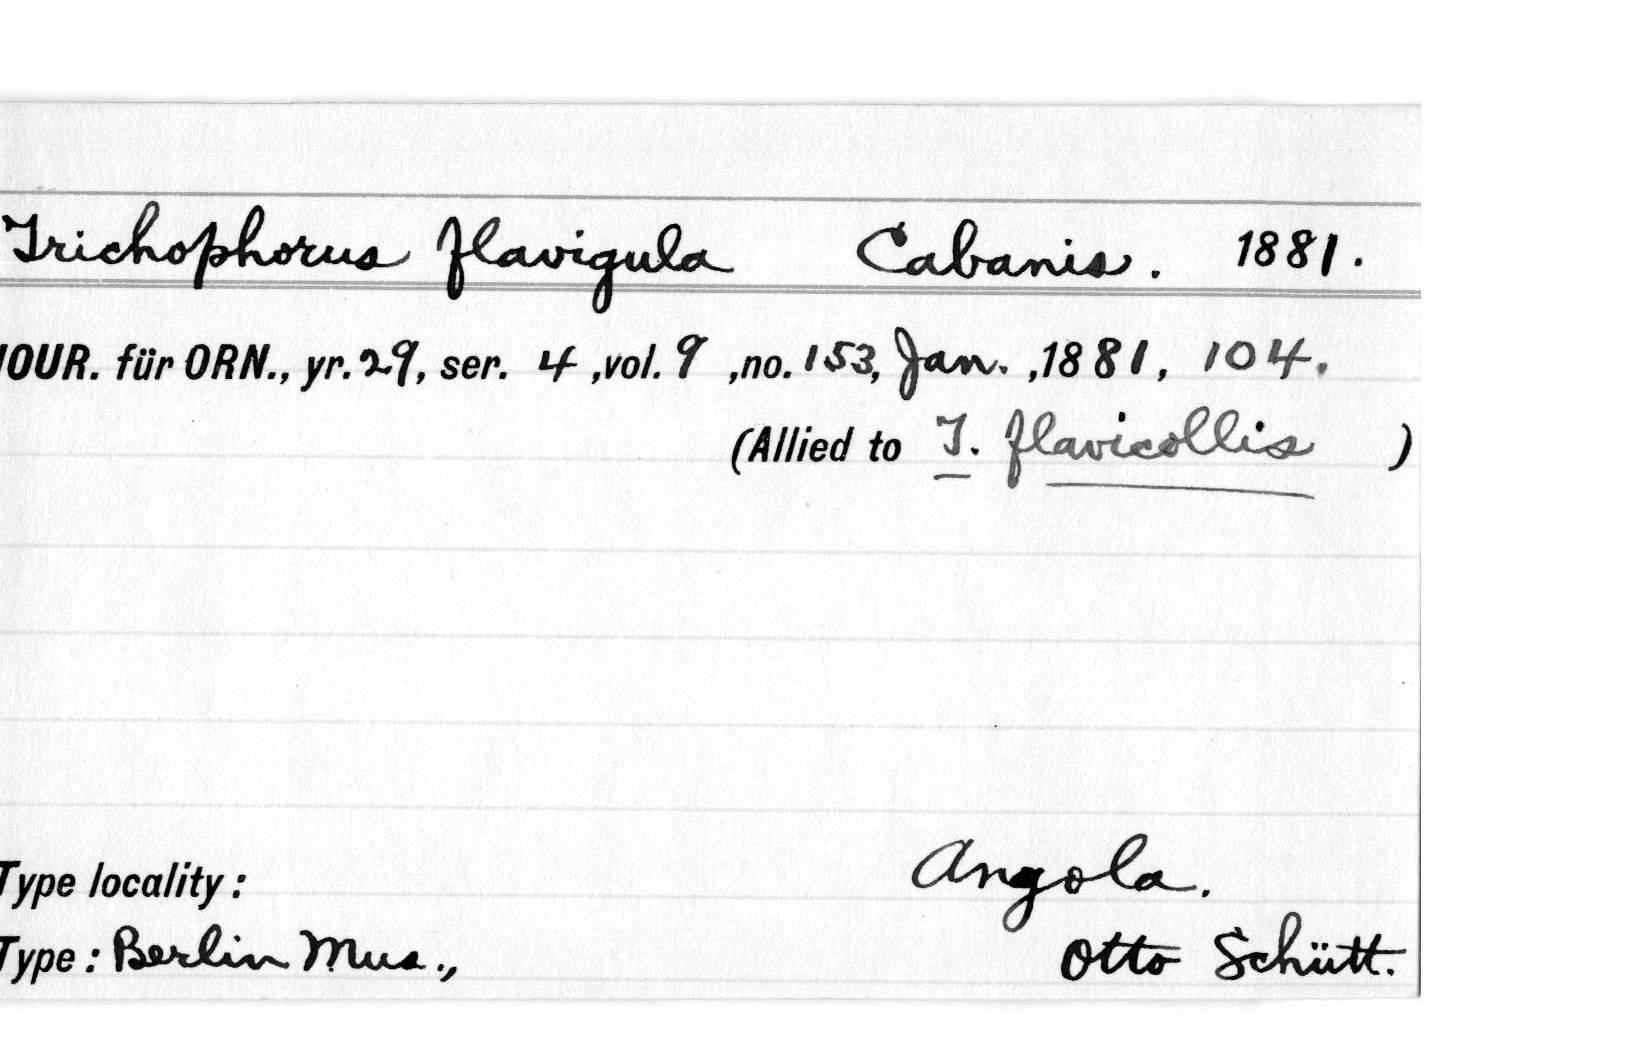 Trichophorus flavigula Cabanis. 1881.
JOUR. für ORN., yr. 29, ser. 4, vol. 9, no. 153, Jan., 1881, 104.
(Allied to T. flavicollis )
Type locality: Angola.
Type: Berlin Mus., Otto Schütt.